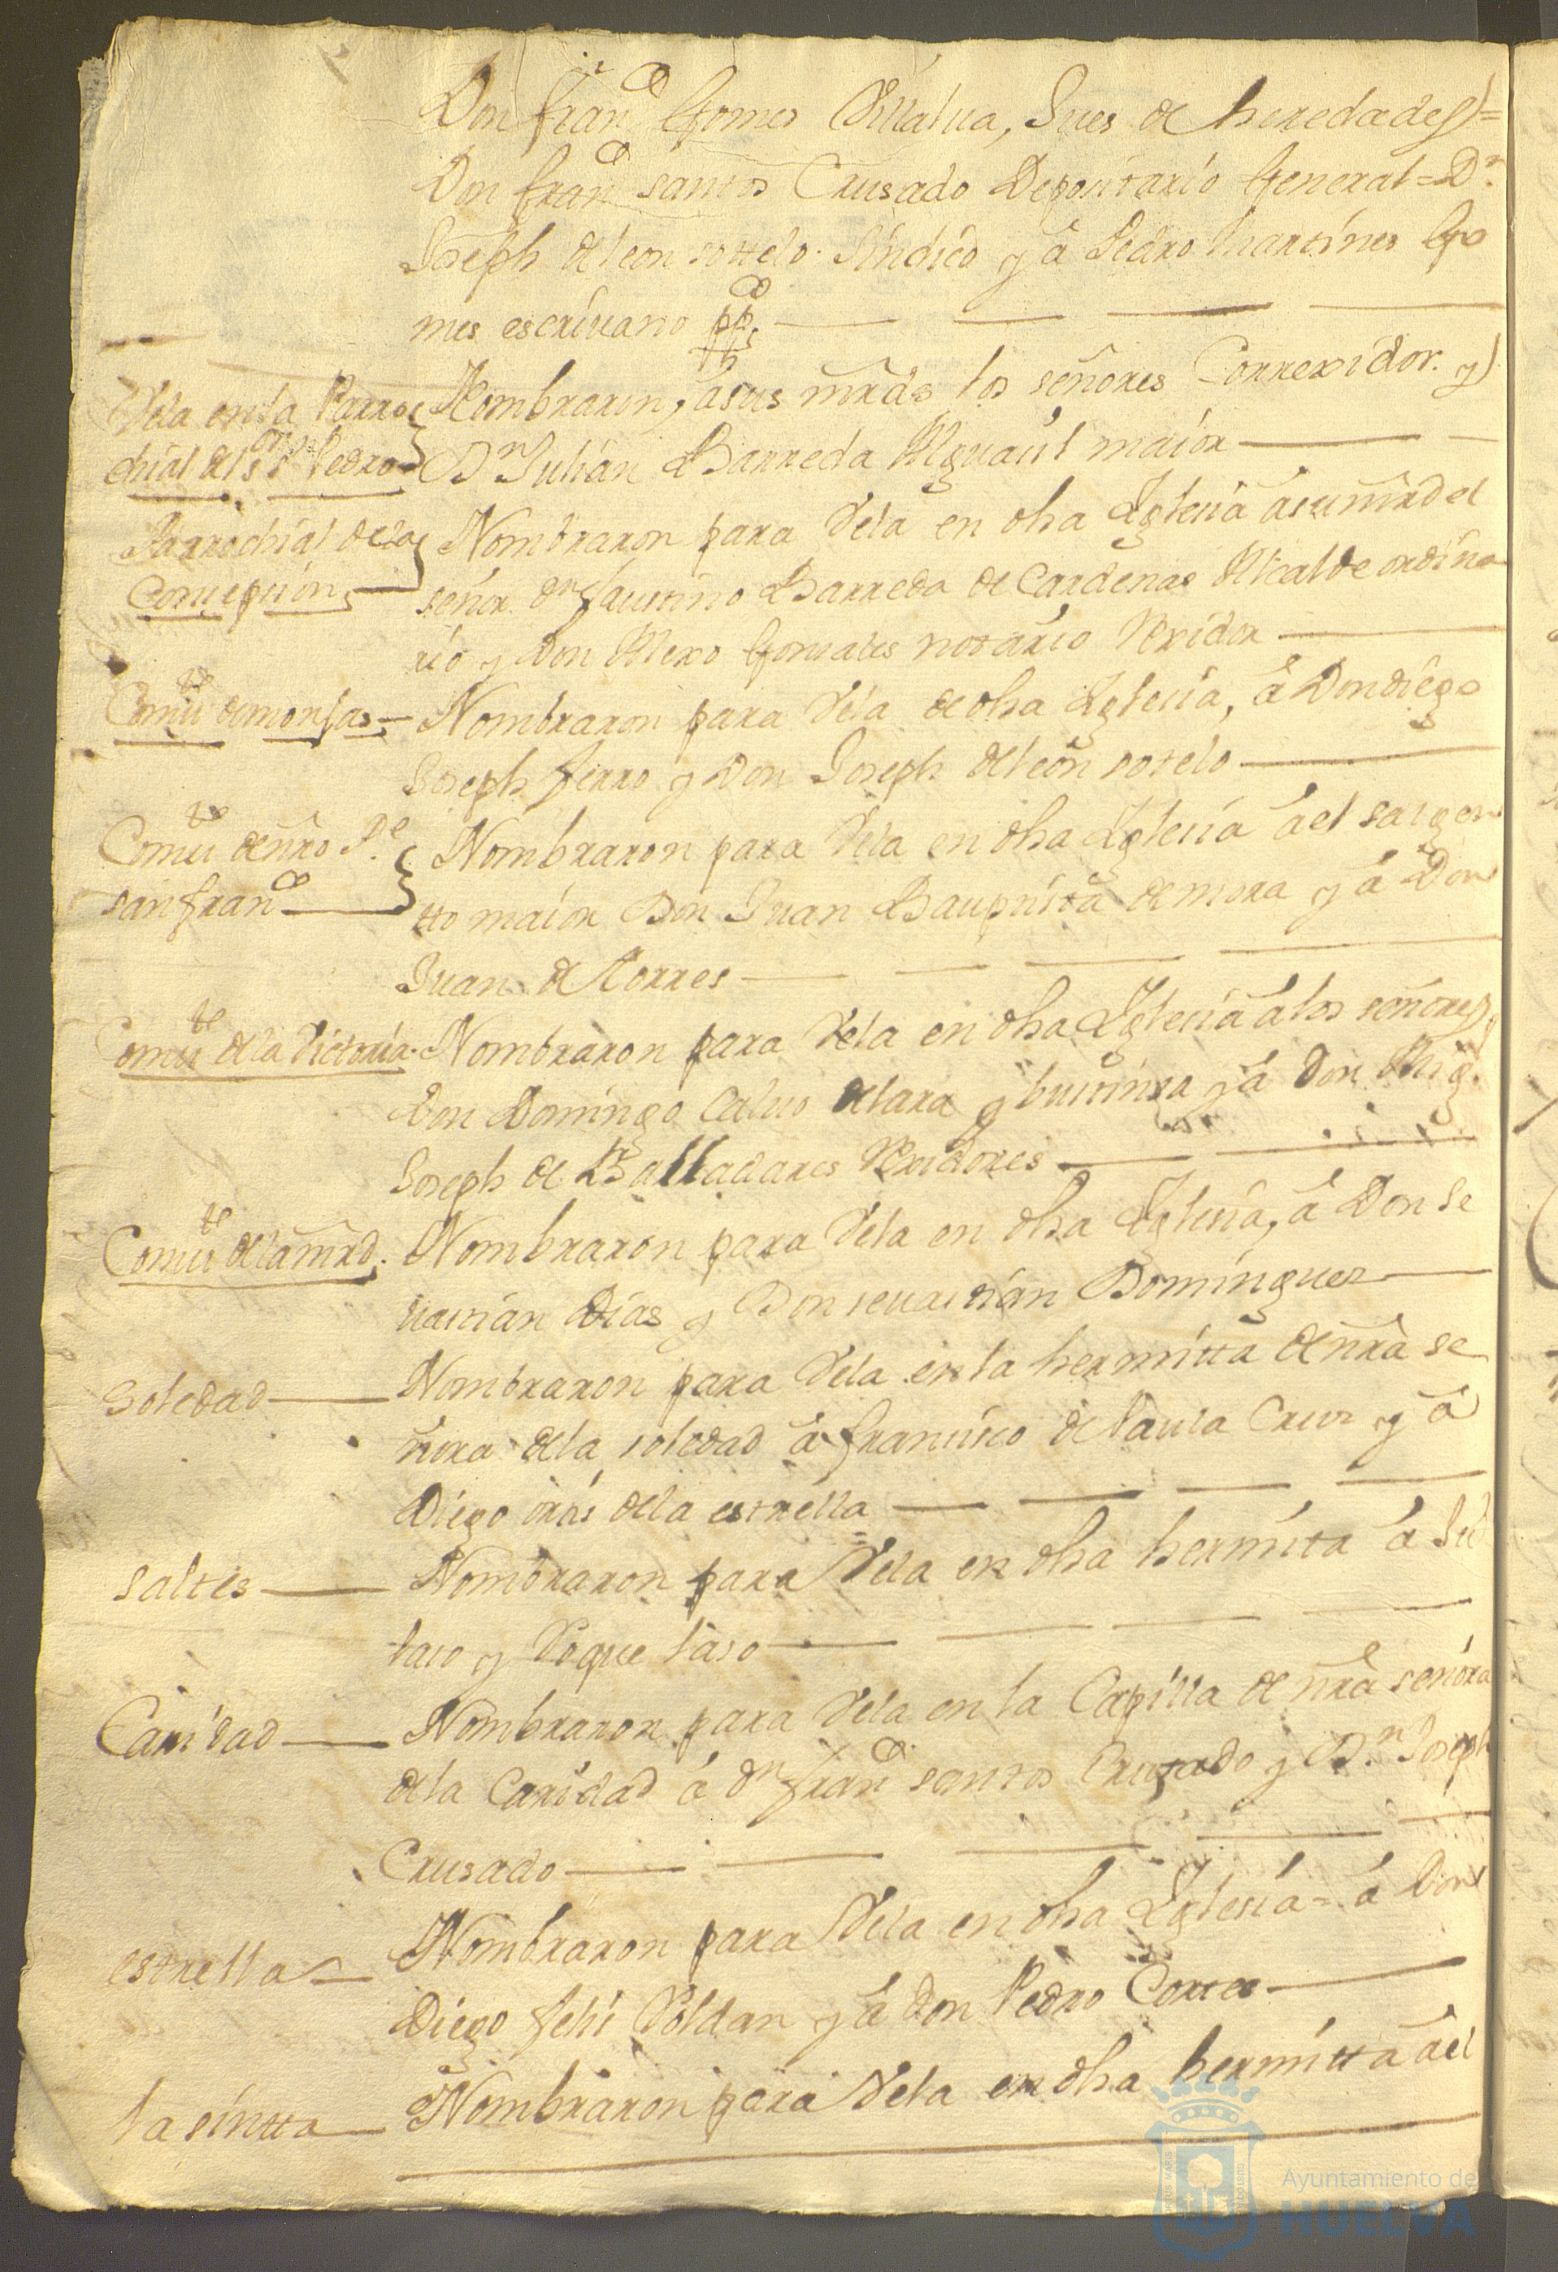 Don fran.co Gomes Villalua, Jues de heredades=
Don fran.co santos Crusado Depositario General=Dn.
Joseph de leon sottelo sindico y á Pedro Martines Go
mes escriuano pp.co
Vela en la Parro
chial del Sr. Sn. Pedro
Nombraron, á sus mrds los señores Correxidor y
Dn Julian Barreda Alguasil maior
Parrochial de la
Consepsion
Nombraron para Vela en dha Iglesia á su mrd el
señor dn faustino Barreda de Cardenas Alcalde ordina
rio y Don Alexo Gonsales notario Rexidor
Comu.te de monjas
Nombraron para Vela de dha Iglesia, á Don diego
Joseph fierro y Don Joseph de leon sotelo
Comu.te de nro P.e
san fran.co
Nombraron para Vela en dha Iglesia á el sargen
tto maior Don Juan Bauptista de mora y á Don
Juan de Torres
Comu.te de la Victoria
Nombraron para Vela en dha Iglesia á los señores
Don Domingo Caluo de lara y bustinsa y á Don Mig.
Joseph de Balladares Rexidores
Comu.te de la mrd.
Nombraron para Vela en dha Iglesia, á Don Se
uastian Dias y Don seuastian Dominguez
Soledad
Nombraron para Vela en la hermitta de nra se
ñora de la soledad á francisco de Paula Cruz y á
Diego de la estrella
Saltes
Nombraron para Vela en dha hermita á
laso y Roque laso
Caridad
Nombraron para Vela en la Capilla de nra señora
de la Caridad á dn fran.co santos Cruzado y Dn. Joseph
Crusado
estrella
Nombraron para Vela en dha Iglesia = á Don
Diego feli Roldan y á don Pedro Cortes
la sintta
Nombraron para Vela en dha hermitta á el
Ayuntamiento de
HUELVA